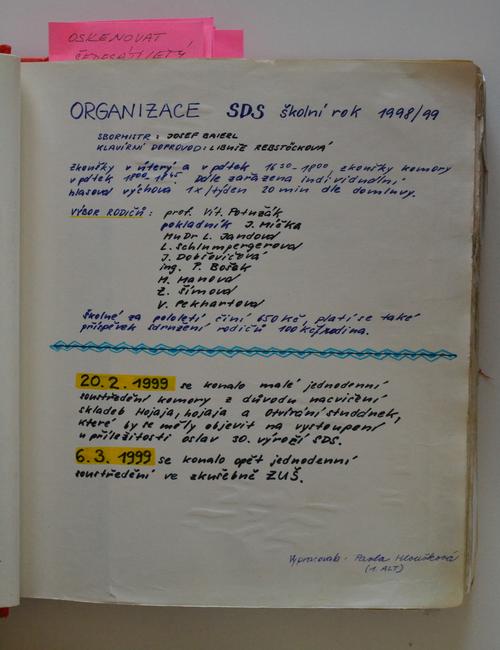 OSKENOVAT
ŠEDESÁTILETÝ
ORGANIZACE SDS školní rok 1998/99
SBORMISTR: JOSEF BAIERL
KLAVÍRNÍ DOPROVOD: LIBUŠE REBSTÖCKOVÁ
Zkoušky v úterý a v pátek 16 30 - 18 00 zkoušky komory
v pátek 18 00 - 18 45. Dále zařazena individuální
hlasová výchova 1x/týden 20 min dle domluvy.
VÝBOR RODIČŮ: prof. Vít. Potužák
pokladník J. Mička
MuDr L. Jandová
L. Schlumpergerová
J. Dobřovičová
ing. P. Bošek
M. Manová
Z. Šímová
V. Pekhartová
Školné za pololetí činí 650 Kč, platí se také
příspěvek sdružení rodičů 100 Kč/rodina.
20.2. 1999 se konalo malé jednodenní
soustředění komory z důvodu nacvičení
skladeb Hojaja, hojaja a Otvírání studánek,
které by se měly objevit na vystoupení
u příležitosti oslav 30. výročí SDS.
6.3. 1999 se konalo opět jednodenní
soustředění ve zkušebně ZUŠ.
Vypracovala: Pavla Hloušková
(1. ALT)